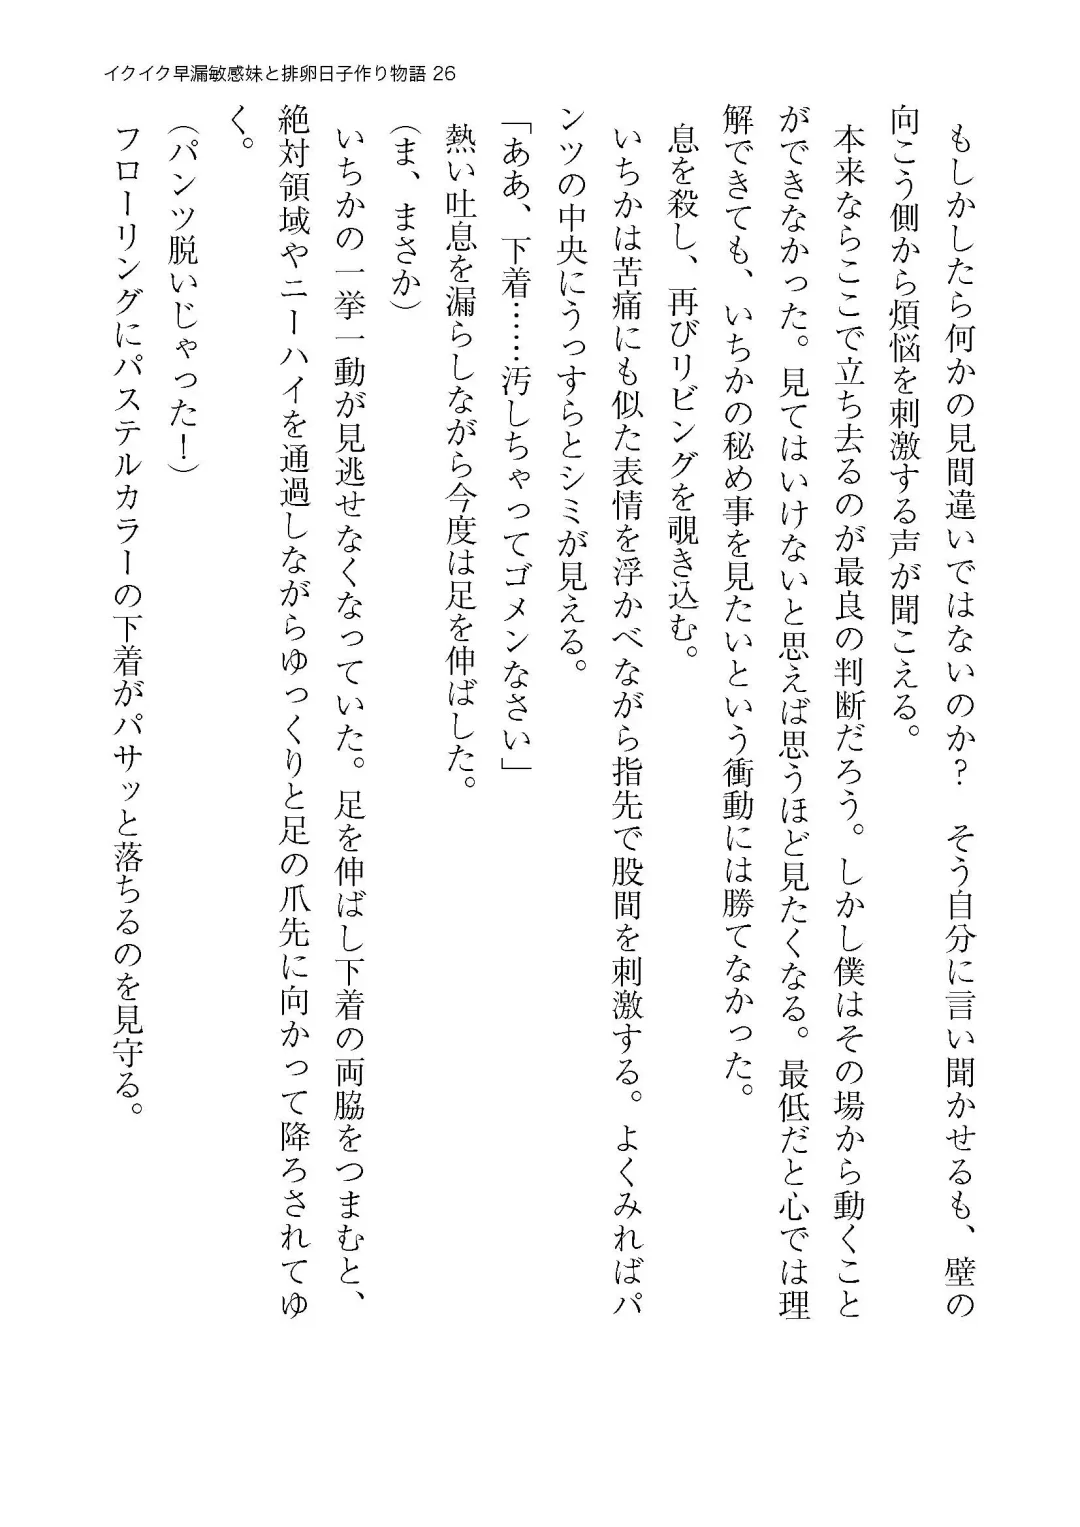 イクイク早漏敏感妹と排卵日子作り物語 26
もしかしたら何かの見間違いではないのか？　そう自分に言い聞かせるも、壁の
向こう側から煩悩を刺激する声が聞こえる。
本来ならここで立ち去るのが最良の判断だろう。しかし僕はその場から動くこと
ができなかった。見てはいけないと思えば思うほど見たくなる。最低だと心では理
解できても、いちかの秘め事を見たいという衝動には勝てなかった。
息を殺し、再びリビングを覗き込む。
いちかは苦痛にも似た表情を浮かべながら指先で股間を刺激する。よくみればパ
ンツの中央にうっすらとシミが見える。
「ああ、下着……汚しちゃってゴメンなさい」
熱い吐息を漏らしながら今度は足を伸ばした。
（ま、まさか）
いちかの一挙一動が見逃せなくなっていた。足を伸ばし下着の両脇をつまむと、
絶対領域やニーハイを通過しながらゆっくりと足の爪先に向かって降ろされてゆ
く。
（パンツ脱いじゃった！）
フローリングにパステルカラーの下着がパサッと落ちるのを見守る。